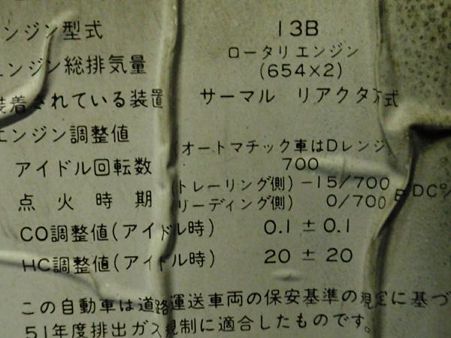 ンジン型式 13B
ロータリエンジン
エンジン総排気量 (654×2)
装着されている装置 サーマル リアクタ方式
エンジン調整値 オートマチック車はDレンジ
アイドル回転数 700
点火時期 (トレーリング側) -15/700
リーディング側) 0/700 BDC°/
CO調整値(アイドル時) 0.1 ± 0.1
HC調整値(アイドル時) 20 ± 20
この自動車は道路運送車両の保安基準の規定に基づ
51年度排出ガス規制に適合したものです。